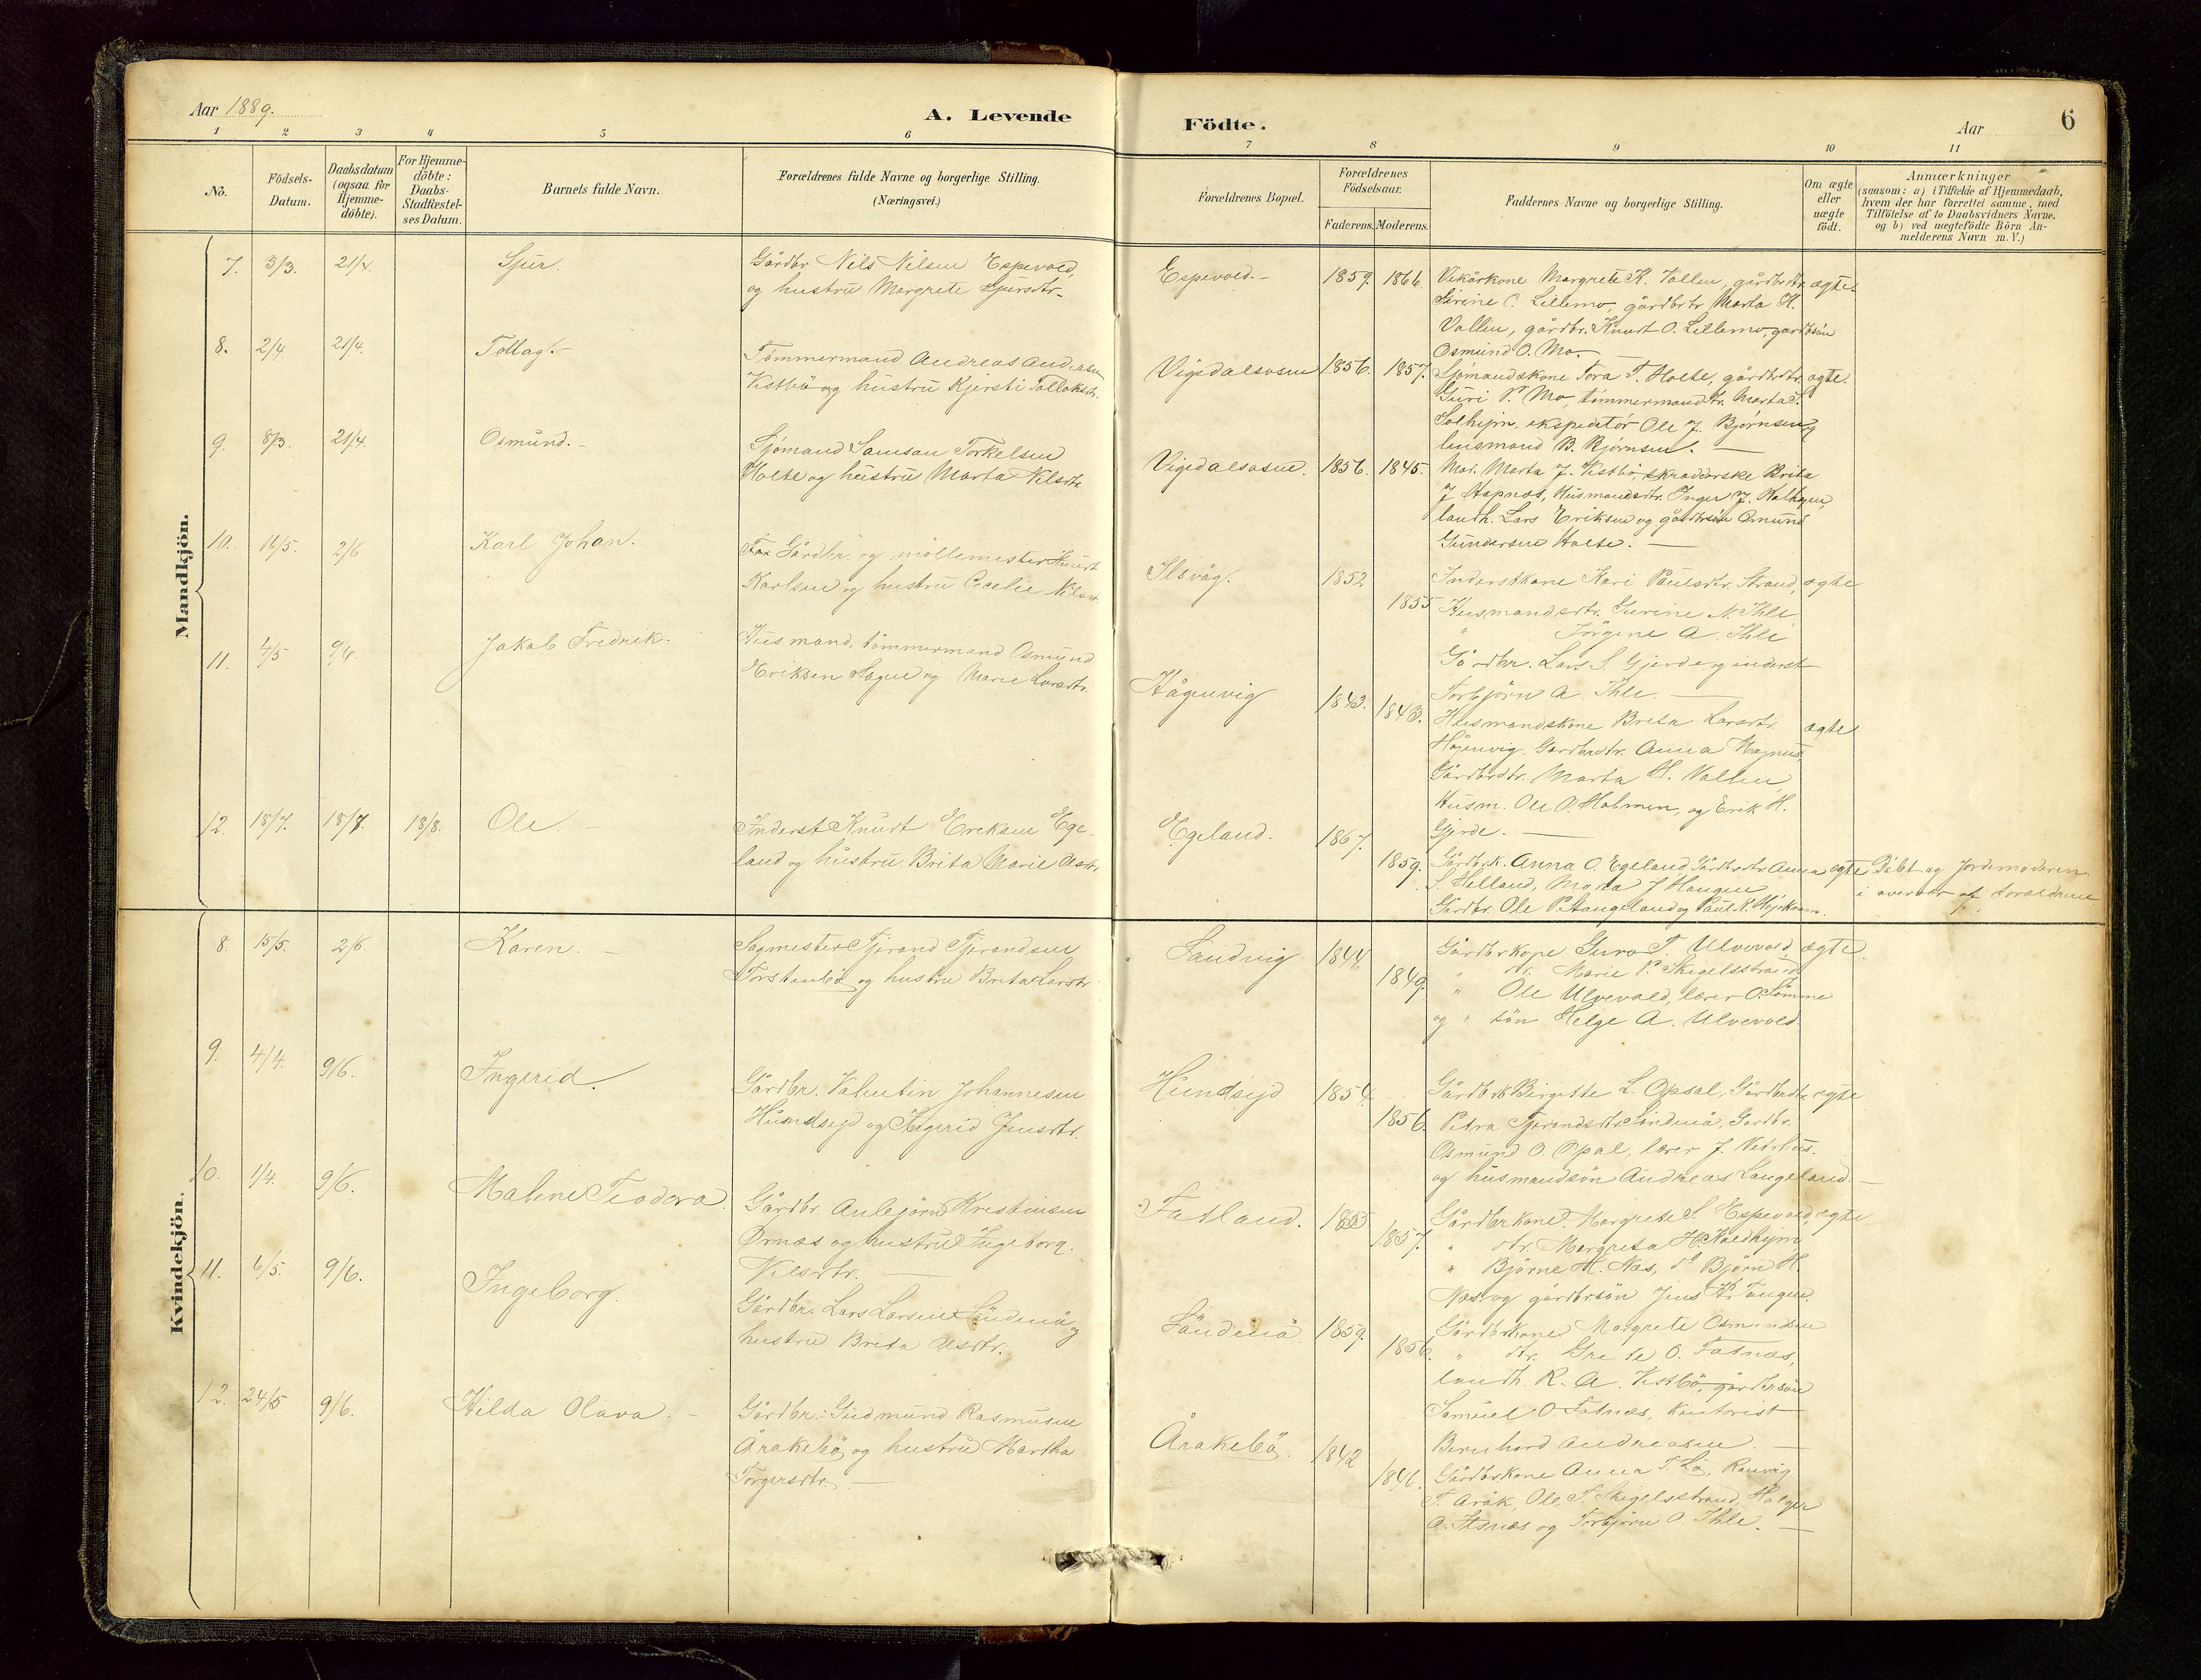 Aar 1889.
A. Levende
Födte.
Aar
6
1 2 3 4 5 6 7 8 9 10 11
No.
Födsels-
Datum.
Daabsdatum
(ogsaa for
Hjemme-
döbte).
For Hjemme-
döbte:
Daabs-
Stadfæstel-
ses Datum.
Barnets fulde Navn.
Forældrenes fulde Navne og borgerlige Stilling.
(Næringsvei.)
Forældrenes Bopæl.
Forældrenes
Födselsaar.
Faderens.
Moderens.
Faddernes Navne og borgerlige Stilling.
Om ægte
eller
uægte
födt.
Anmærkninger
(saasom: a) i Tilfælde af Hjemmedaab,
hvem der har forrettet samme, med
Tilföielse af to Daabsvidners Navne.
og b) ved uægtefödte Börn An-
melderens Navn m. V.)
Mandkjön.
7. 3/3. 21/4. Sjur.
Gårdbr Nils Nilsen Espevold,
og hustru Margrete Sjursdtr.
Espevold 1859. 1866.
Vekårkone Margrete K. Vallen, gårdbrdtr. ægte.
Serine C. Lillemo, gårdbrtr. Marta H.
Vallen, gårdbr. Knudt O. Lillemo, gardbsøn
Osmund O. Mo.
8. 2/4. 21/4. Tollag.
Tømmermand Andreas Andersen
Vestbö og hustru Kjersti Tollaksdt.
Vigedalsosen 1856. 1857.
Sjømandskone Tora T. Holte, gårdbrdtr. ægte.
Guri P. Mo, tømmermandtr. Marta S.
Solheim, ekspeditør Ole J. Bjørnsen og
lensmand B. Bjørnsen.
9. 8/3. 21/4. Osmund.
Sjømand Samson Torkelsen
Holte og hustru Marta Nilsdtr
Vigedalsosen. 1856. 1845.
Mad. Marta J. Vestbö, skrædderske Brita
J Hapnæs, Husmandsdtr. Inger J.
landh. Lars Eriksen og gårdbrsøn Osmund
Gundersen Holte.
10. 16/5. 2/6 Karl Johan.
Gårdbr. og møllemester Knudt
Karlsen og hustru Cecelie Nilsdt.
Ilsvåg. 1852 1855
Inderstkone Kari Paulsdtr. Strand, ægte
Husmandsdtr. Gurine N. Ihle
" Jørgine A. Ihle
Gårdbr. Lars S Gjerde og inderst
Torbjørn A. Ihle.
11. 4/5 9/6. Jakob Fredrik.
Husmand, tømmermand Osmund
Eriksen Hagen og Marie Larsdtr.
Hågenvig 1843. 1843.
Husmandskone Brita Larsdtr. ægte
Hågenvig. Gardbrdtr. Anna Magnus
Gårdbrdtr. Marta H. Vallen
Husm. Ole O. Holmen, og Erik H.
Gjerde.
12. 18/7. 18/8. 18/8. Ole.
Inderst Knudt Eriksen Ege-
land og hustru Brita Marie Olsdtr.
Egeland. 1867. 1859.
Gårdbrk. Anna O. Egeland Gårdbrdtr. Anna ægte
S. Helland, Marta J Haugen
Gardbr. Ole P. Haugeland og Paul N.
Döbt ag Jordemoderen
i overvær af forældrene
Kvindekjön.
8. 15/5. 2/6. Karen.
Sagmester Tjerand Tjerandsen
Torstenbö og hustru Brita Larsdtr
Sandvig 1844. 1849.
Gårdbrkone Guro T. Ulvevold, ægte.
" dtr. Marie P. Skigelsstrand
" Ole Ulvevold, lærer O. Tømme
og " søn Helge A. Ulvevold.
9. 4/4. 9/6. Ingerid.
Gårdbr. Valentin Johannesen
Hundseid og Ingerid Jensdtr.
Hundseid 1854. 1856.
Gårdbrk Birgitte L. Opsal, Gårdbrdtr. ægte
Petra Tjerandsdtr. Söndenå, Gardbr.
Osmund O. Opsal, lærer J.
og husmandsøn Andreas Langeland.
10. 1/4. 9/6. Maline Teodora.
Gårdbr. Anbjørn Kristensen
Ornæs og hustru Ingeborg
Nilsdtr.
Fatland. 1855 1857.
Gårdbrkone Margrete S. Espevold, ægte
" dtr. Margreta H.
" Björne H. Næs, do Björn H.
Næs og gårdbrsön Jens H. Tangen.
11. 6/5. 9/6. Ingeborg.
Gårdbr. Lars Larsen Söndenå og
hustru Brita Olsdtr.
Söndenå 1859. 1856.
Gårdbrkone Margrete Osmundsen
" dtr. Grete O. Fatnæs,
landh. R. A. Vestbö, gårdbrsön
Samuel O. Fatnæs, Kontorist
Bernhard Andreasen
12. 24/5 9/6. Hilda Olava.
Gårdbr. Gudmund Rasmusen
Årakebö og hustru Martha
Torgersdtr.
Årakebö. 1842 1846.
Gårdbrkone Anna T. Lö, Ranvig
T. Aråk, Ole T. Skigelsstrand, Holger
O. og Torbjörn O Ihle.